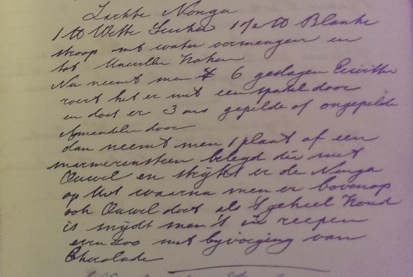 Zachte Nonga
1 ℔ Witte Suiker 1/2 ℔ Blanke
stroop met water vermengen en
tot koken
Nu neemt men 6 geslagen Eiwitten
roert het er met een spatel door
en doet er 3 ons gepelde of ongepelde
Amandelen door
dan neemt men 1 plaat of een
marmerensteen belegd die met
Ouwel en strijkt er de Nonga
op uit waarna men er bovenop
ook Ouwel doet als 't geheel koud
is snijdt men 't in reepen
evenzoo met bijvoeging van
Chocolade